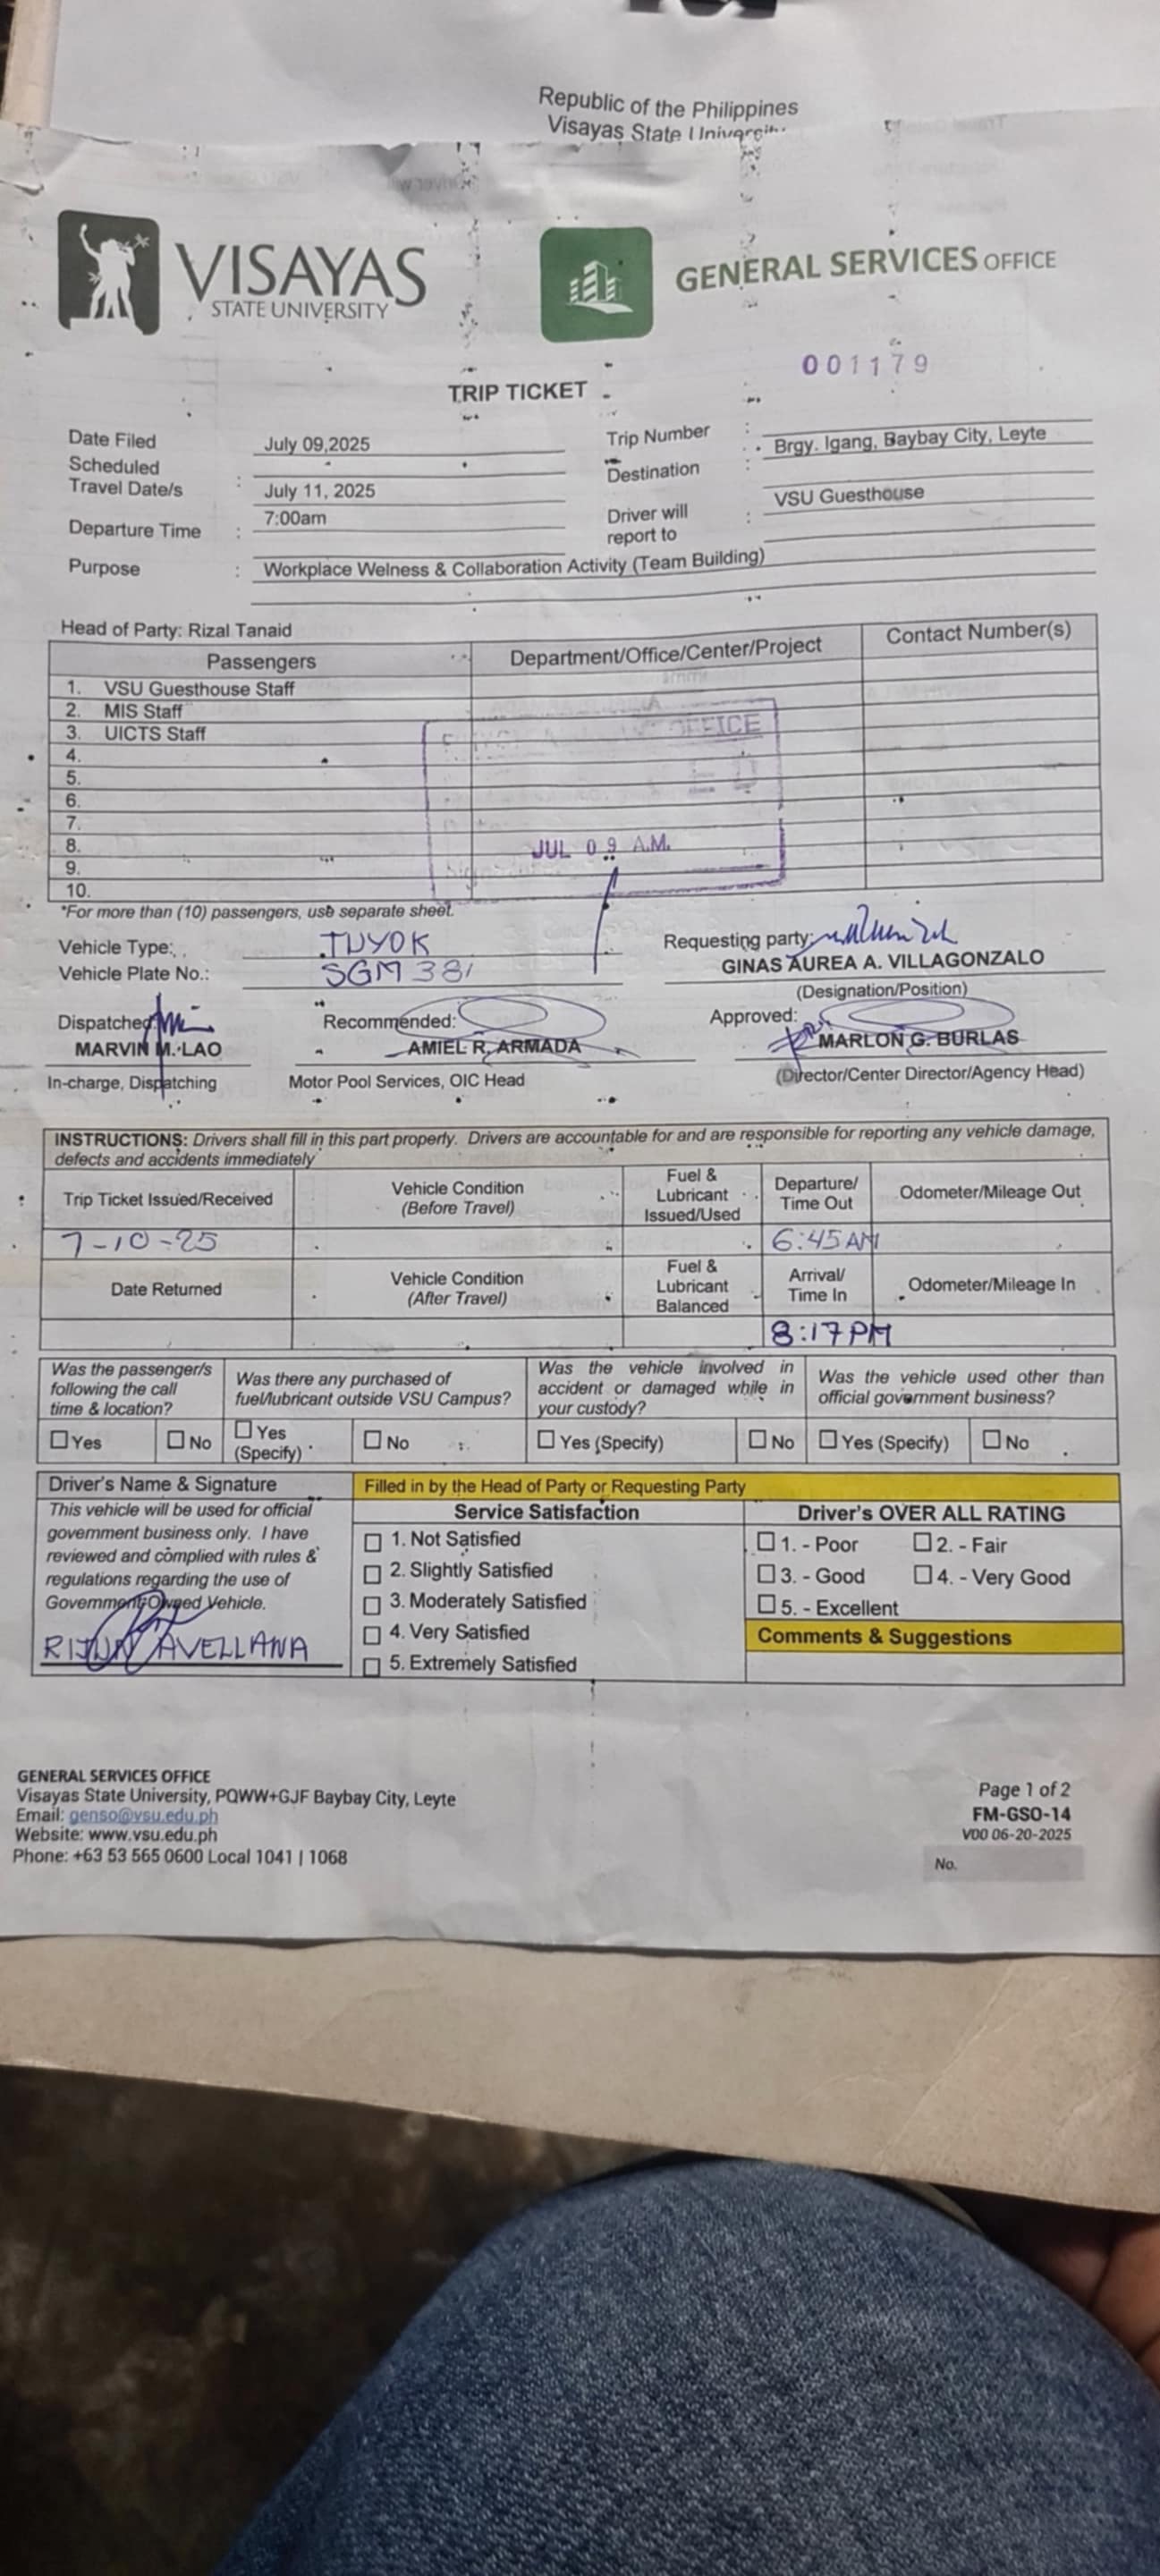 Republic of the Philippines
Visayas State University
VISAYAS
STATE UNIVERSITY
GENERAL SERVICES OFFICE
001179
TRIP TICKET
Date Filed July 09,2025
Trip Number :
Scheduled Travel Date/s : July 11, 2025
Destination : Brgy. Igang, Baybay City, Leyte
Departure Time : 7:00am
Driver will report to : VSU Guesthouse
Purpose : Workplace Welness & Collaboration Activity (Team Building)
Head of Party: Rizal Tanaid
Passengers Department/Office/Center/Project Contact Number(s)
1. VSU Guesthouse Staff
2. MIS Staff
3. UICTS Staff
4.
5.
6.
7.
8.
9.
10.
OFFICE
JUL 09 A.M.
*For more than (10) passengers, use separate sheet.
Vehicle Type: TUYOK
Vehicle Plate No.: SGM 381
Requesting party:
GINAS AUREA A. VILLAGONZALO
(Designation/Position)
Dispatched: Recommended: Approved:
MARVIN M. LAO AMIEL R. ARMADA MARLON G. BURLAS
In-charge, Dispatching Motor Pool Services, OIC Head (Director/Center Director/Agency Head)
INSTRUCTIONS: Drivers shall fill in this part properly. Drivers are accountable for and are responsible for reporting any vehicle damage,
defects and accidents immediately
Trip Ticket Issued/Received Vehicle Condition (Before Travel) Fuel & Lubricant Issued/Used Departure/ Time Out Odometer/Mileage Out
7-10-25 6:45AM
Date Returned Vehicle Condition (After Travel) Fuel & Lubricant Balanced Arrival/ Time In Odometer/Mileage In
8:17PM
Was the passenger/s following the call time & location? Was there any purchased of fuel/lubricant outside VSU Campus? Was the vehicle involved in accident or damaged while in your custody? Was the vehicle used other than official government business?
Yes No Yes (Specify) No Yes (Specify) No Yes (Specify) No
Driver's Name & Signature
This vehicle will be used for official
government business only. I have
reviewed and complied with rules &
regulations regarding the use of
Government Owned Vehicle.
RIJUN AVELLANA
Filled in by the Head of Party or Requesting Party
Service Satisfaction
1. Not Satisfied
2. Slightly Satisfied
3. Moderately Satisfied
4. Very Satisfied
5. Extremely Satisfied
Driver's OVER ALL RATING
1. - Poor 2. - Fair
3. - Good 4. - Very Good
5. - Excellent
Comments & Suggestions
GENERAL SERVICES OFFICE
Visayas State University, PQWW+GJF Baybay City, Leyte
Email: genso@vsu.edu.ph
Website: www.vsu.edu.ph
Phone: +63 53 565 0600 Local 1041 | 1068
Page 1 of 2
FM-GSO-14
V00 06-20-2025
No.